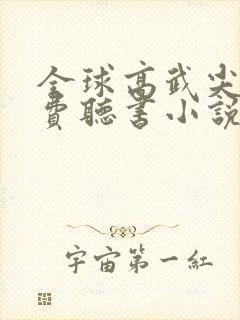 全球高武尖
費聽書小說
宇宙第一紅